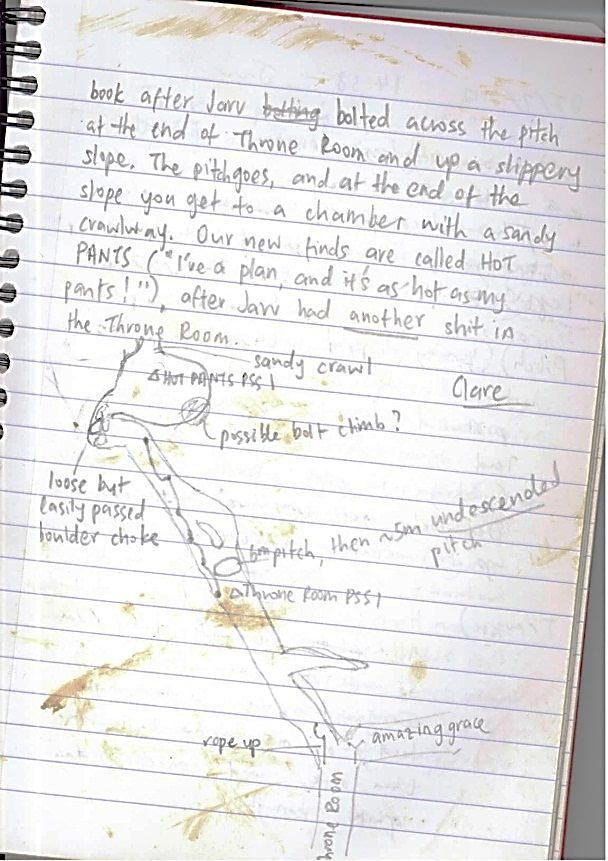 book after Jarv botting bolted across the pitch
at the end of Throne Room and up a slippery
slope. The pitch goes, and at the end of the
slope you get to a chamber with a sandy
crawlway. Our new finds are called HOT
PANTS ("I've a plan, and it's as hot as my
pants!"), after Jarv had another shit in
the Throne Room.
sandy crawl
△HOT PANTS PSS1
Clare
possible bolt climb?
loose but
easily passed
boulder choke
6m pitch, then ~5m undescended
pitch
△Throne Room PSS1
amazing grace
rope up
Throne Room